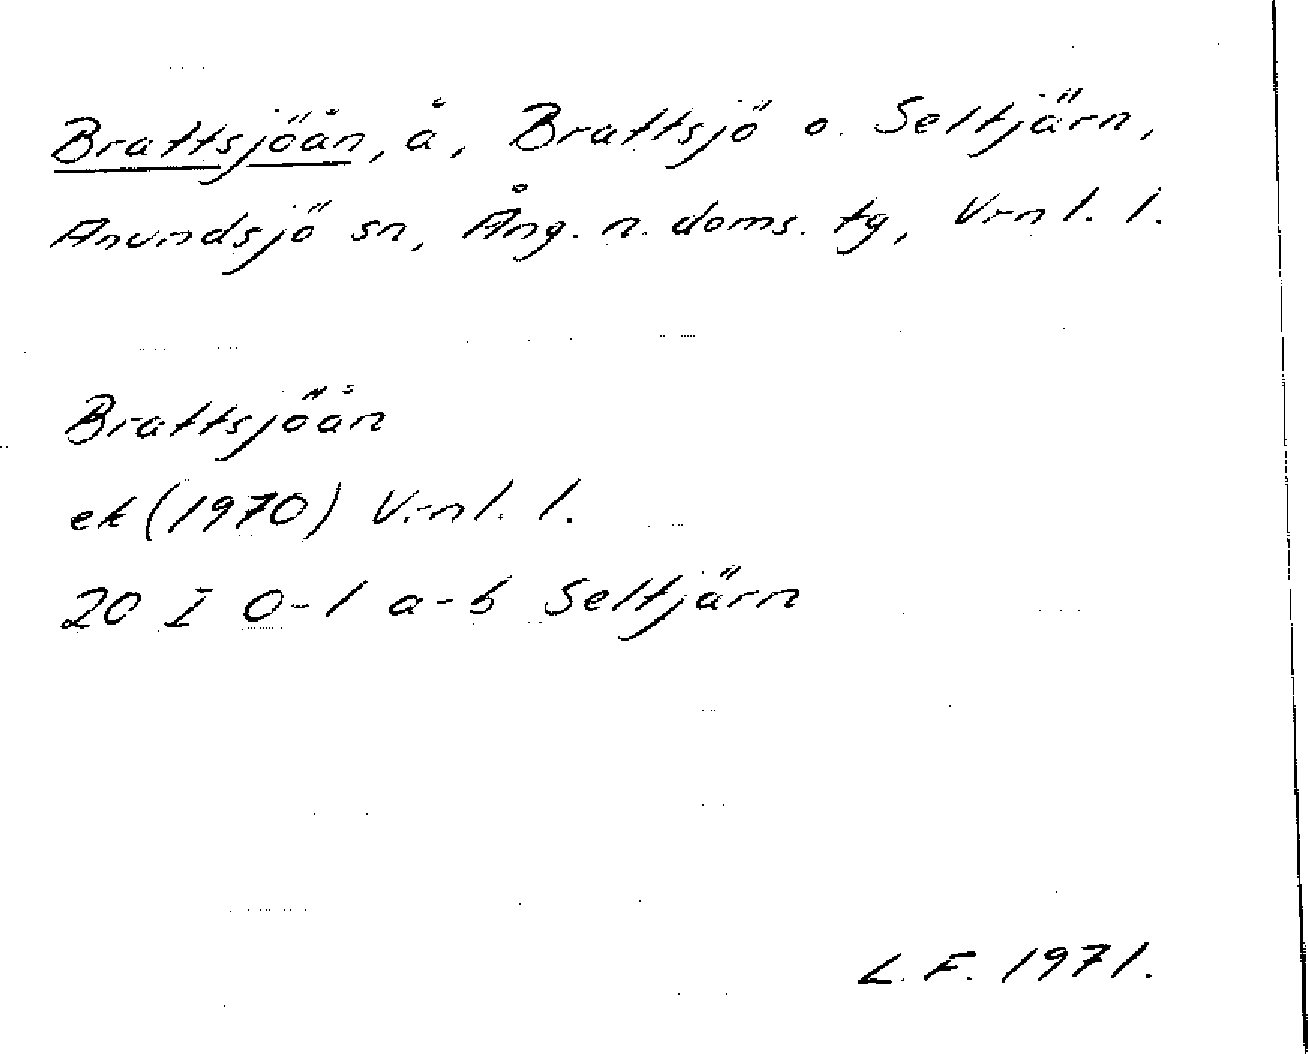 Brattsjöån, å, Brattsjö o. Seltjärn,
Anundsjö sn, Ång. n. doms. tg, Vrnl. l.
Brattsjöån
ek (1970) Vrnl. l.
20 I 0-1 a-b Seltjärn
L. F. 1971.